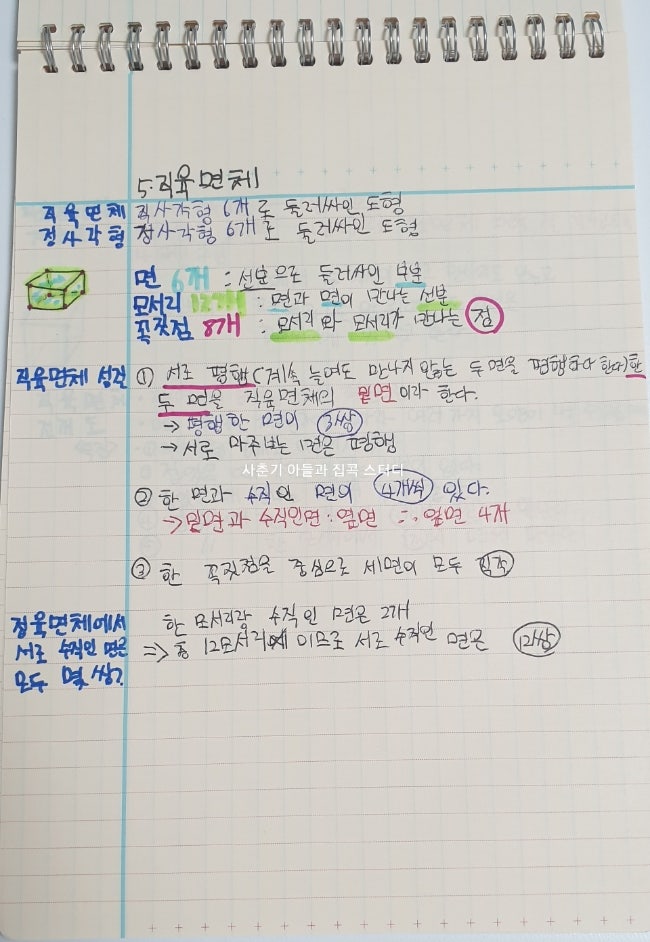 5. 직육면체
직육면체 직사각형 6개로 둘러싸인 도형
정사각형 정사각형 6개로 둘러싸인 도형
면 6개 : 선분으로 둘러싸인 부분
모서리 12개 : 면과 면이 만나는 선분
꼭짓점 8개 : 모서리와 모서리가 만나는 점
직육면체 성질 ① 서로 평행(계속 늘여도 만나지 않는 두 면을 평행하다 한다)한
두 면을 직육면체의 밑면이라 한다.
→ 평행한 면이 3쌍
→ 서로 마주보는 면은 평행
사춘기 아들과 집콕 스터디
② 한 면과 수직인 면이 4개씩 있다.
→ 밑면과 수직인면: 옆면 ∴ 옆면 4개
③ 한 꼭짓점을 중심으로 세면이 모두 직각
정육면체에서 한 모서리랑 수직인 면은 2개
서로 수직인 면은 ⇒ 총 12모서리 이므로 서로 수직인 면은 12쌍
모두 몇 쌍?